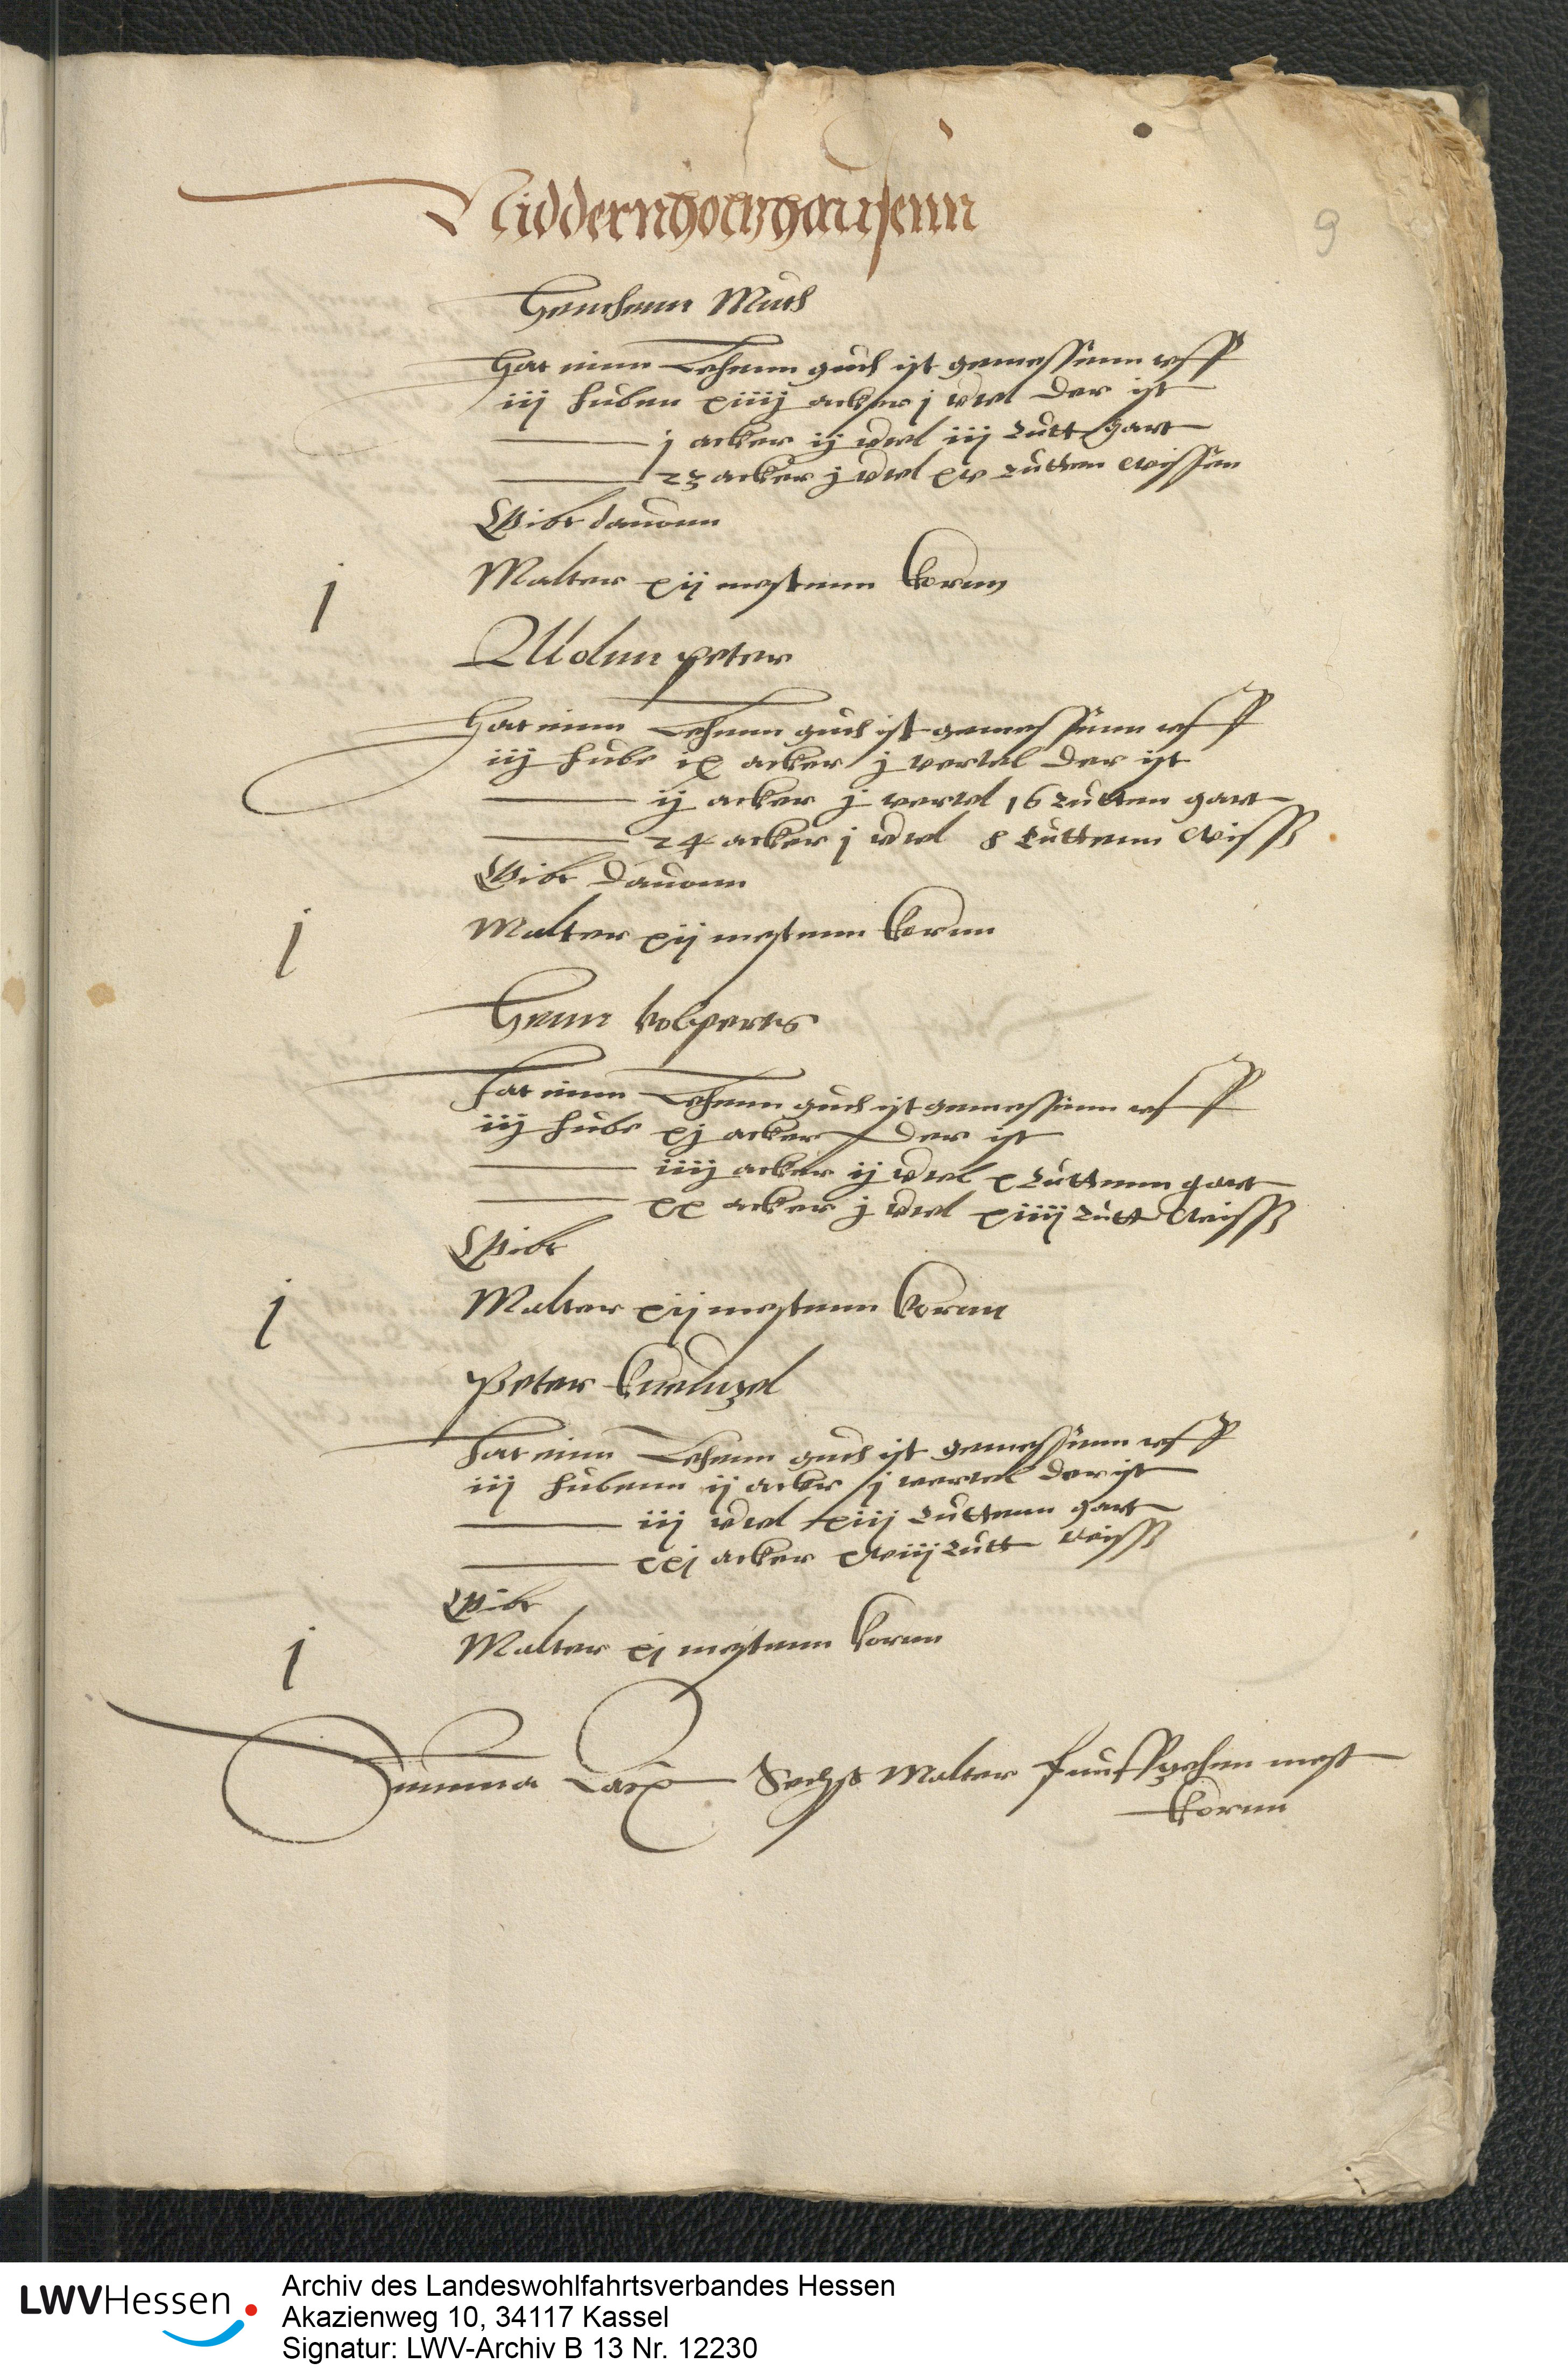 Niddernholtzhausenn
9
Henchenn Muth
Hat einn Lehenn guth ist gemessenn vff
iij huben xiiij acker j vrtl der ist
j acker ij vrtl iij Rutt gart
23 acker j vrtl xv Rutten wissen
Gibt dauonn
j Malter xij mestenn kornn
Peter
Hat einn Lehenn guth ist gemessenn vff
iij hube ix acker j vertel der ist
ij acker j vertel 16 Rutten gart
24 acker j vrtl 8 Ruttenn wiss
Gibt dauonn
j Malter xij mestenn kornn
Henn Volperts
hat einn Lehenn guth ist gemessenn vff
iij hube xj acker der ist
iiij acker ij vrtl x Ruttenn gart
xx acker j vrtl xiiij Rutt wiss
Gibt
j Malter xij mestenn kornn
Peter
hat einn Lehenn guth ist gemessenn vff
iij hubenn ij acker j vertel der ist
iij vrtl xiij Ruttenn gart
xxj acker xviij Rutt wiss
Gibt
j Malter xj mestenn kornn
Summa Sechs Malter funffzehen mest
kornn
LWVHessen
Archiv des Landeswohlfahrtsverbandes Hessen
Akazienweg 10, 34117 Kassel
Signatur: LWV-Archiv B 13 Nr. 12230